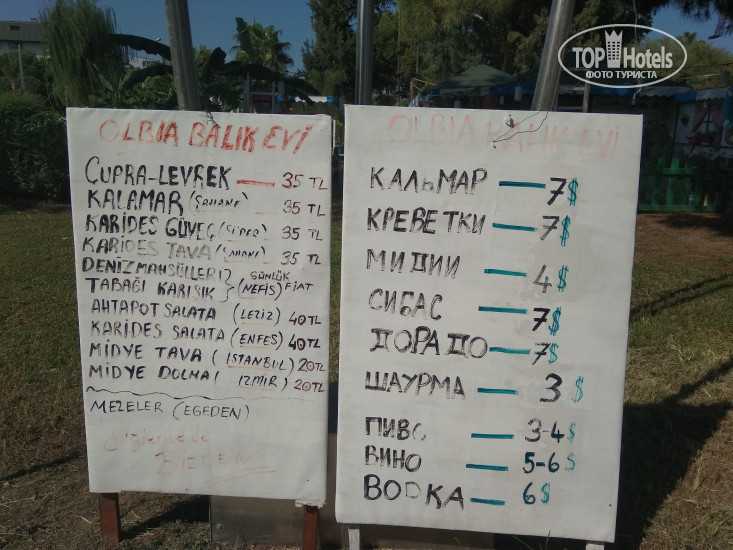 TOP Hotels
ФОТО ТУРИСТА
OLBIA BALIK EVI
ÇUPRA-LEVREK — 35 TL
KALAMAR (ŞAHANE) 35 TL
KARİDES GÜVEÇ (SÜPER) 35 TL
KARİDES TAVA (ŞAHANE) 35 TL
DENİZ MAHSÜLLERİ
TABAĞI KARIŞIK } (NEFİS) GÜNLÜK FİAT
AHTAPOT SALATA (LEZİZ) 40 TL
KARİDES SALATA (ENFES) 40 TL
MİDYE TAVA (İSTANBUL) 20 TL
MİDYE DOLMA (İZMİR) 20 TL
MEZELER (EGEDEN)
BİZDEN
OLBIA BALIK EVI
КАЛЬМАР — 7$
КРЕВЕТКИ — 7$
МИДИИ — 4$
СИБАС — 7$
ДОРАДО — 7$
ШАУРМА — 3$
ПИВО — 3-4$
ВИНО — 5-6$
ВОДКА — 6$